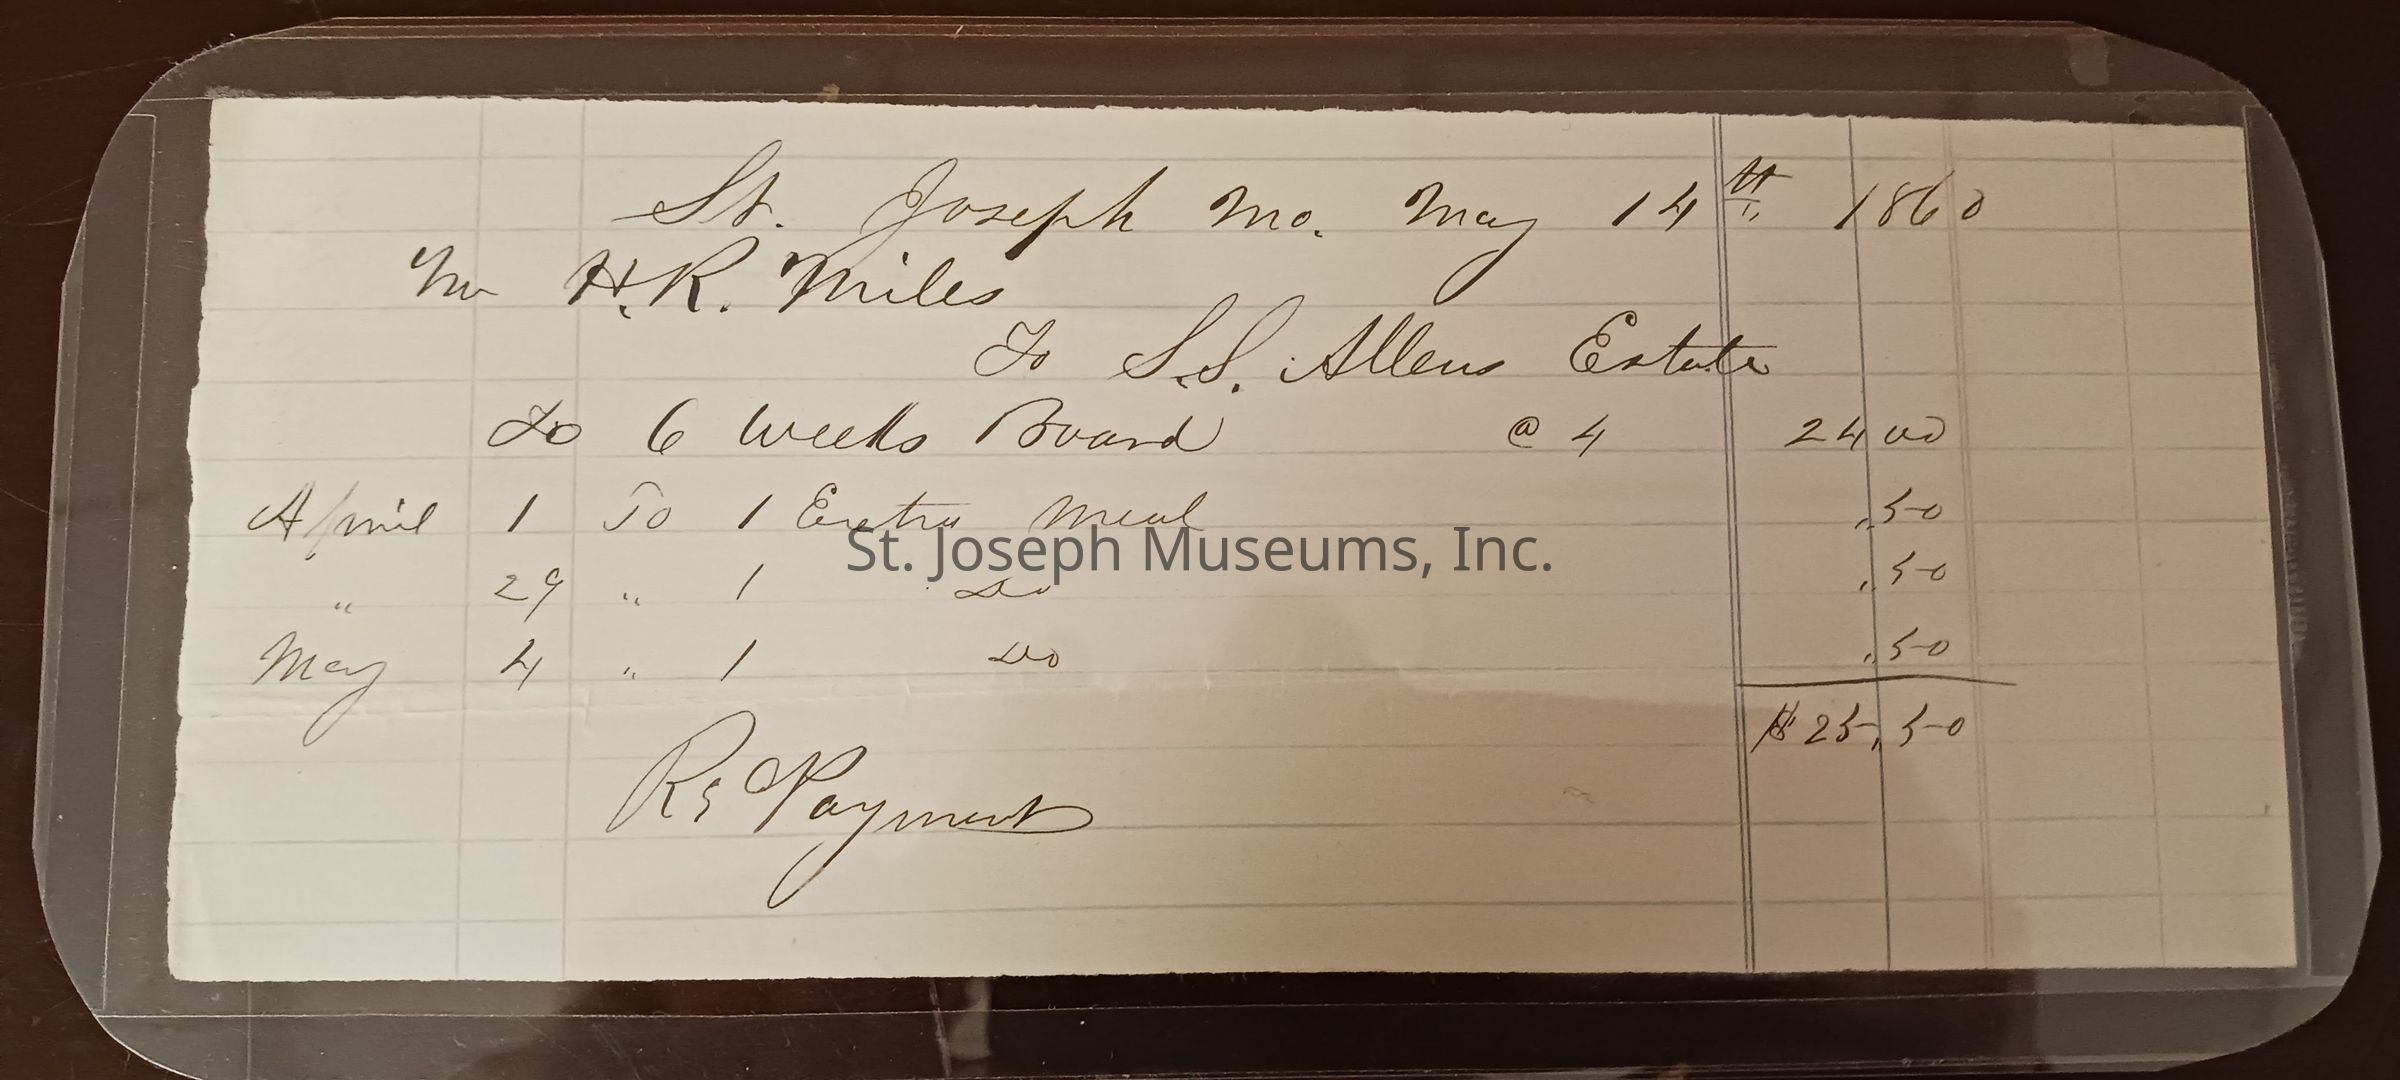 St. Joseph Mo. May 14th 1860
Mr H.R. Miles
To S.S. Allens Estate
To 6 Weeks Board @ 4 24 00
April 1 To 1 Extra Meal .50
" 29 " 1 Do .50
May 4 " 1 Do .50
$25.50
Rc Payment
St. Joseph Museums, Inc.